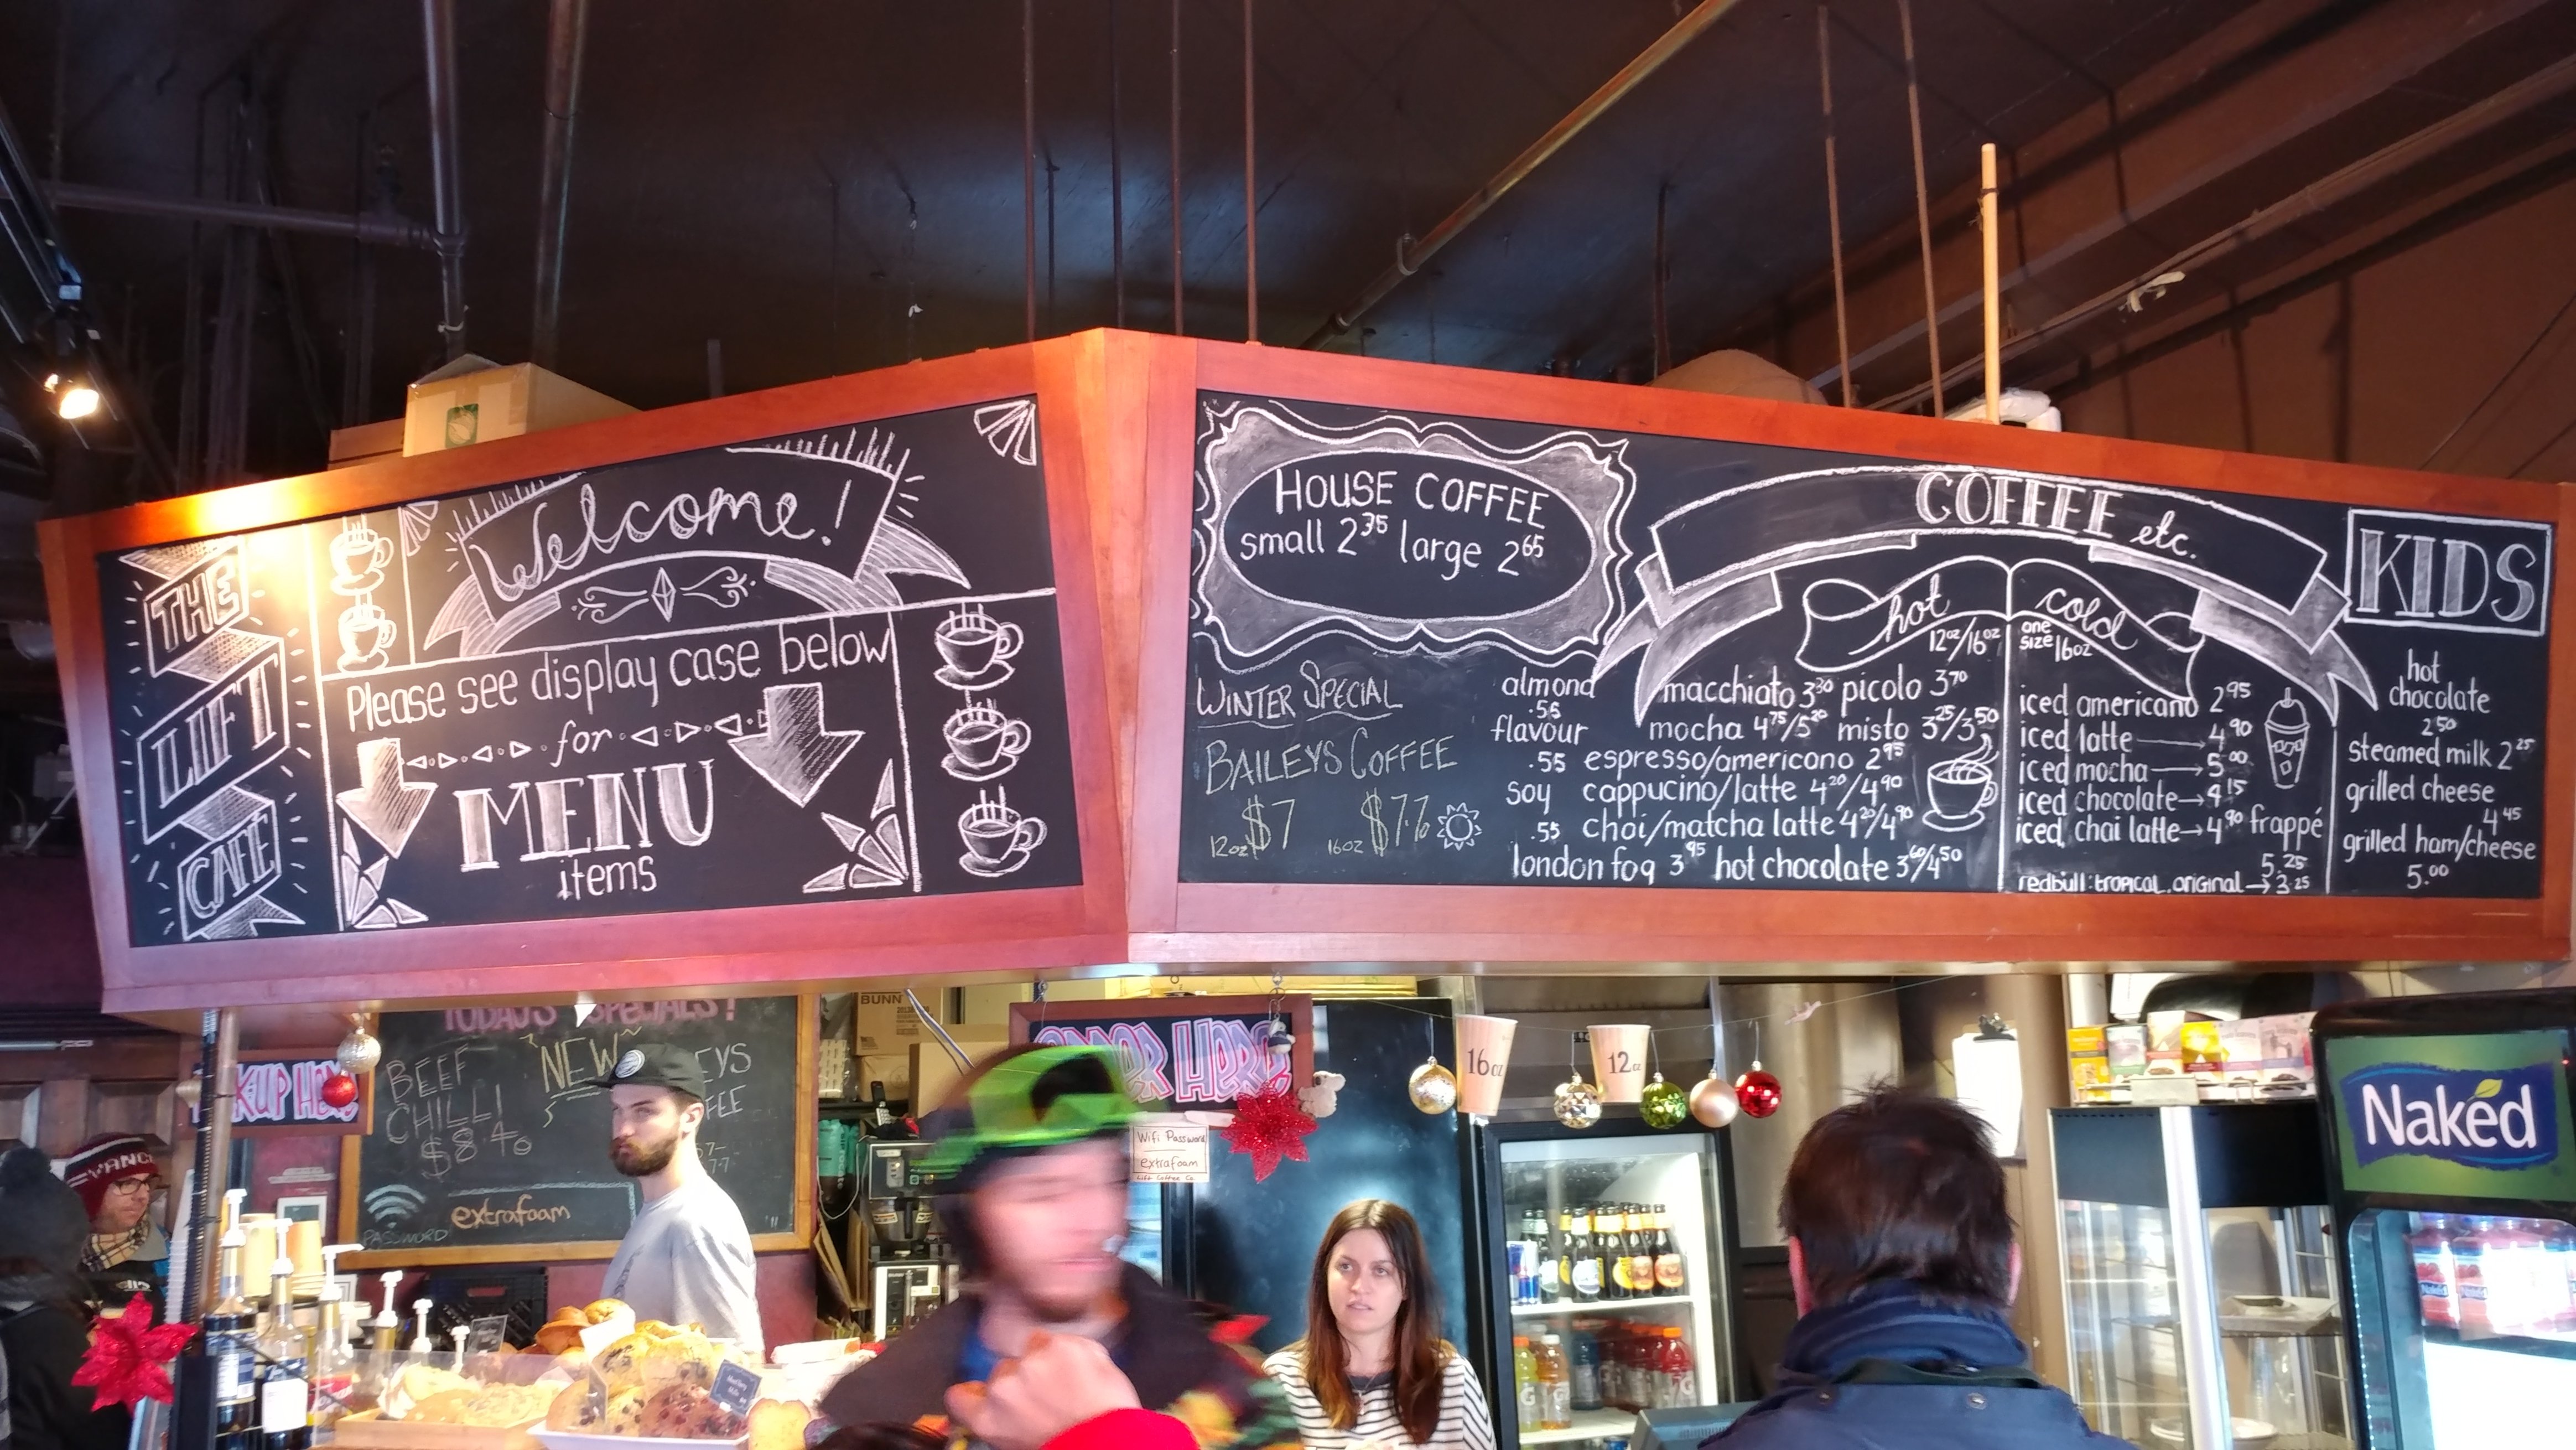 THE
LIFT
CAFE
Welcome!
Please see display case below
for
MENU
items
HOUSE COFFEE
small 2.35 large 2.65
WINTER SPECIAL
BAILEYS COFFEE
12oz $7 16oz $7.7
COFFEE etc.
hot
12oz/16oz
almond
.55
flavour
.55
soy
.55
macchiato 3.30 picolo 3.70
mocha 4.75/5.20 misto 3.25/3.50
espresso/americano 2.95
cappucino/latte 4.20/4.90
chai/matcha latte 4.20/4.90
london fog 3.95 hot chocolate 3.60/4.50
cold
one
size 16oz
iced americano 2.95
iced latte 4.90
iced mocha 5.00
iced chocolate 4.15
iced chai latte 4.90 frappé
5.25
redbull: tropical, original 3.25
KIDS
hot
chocolate
2.50
steamed milk 2.25
grilled cheese
4.45
grilled ham/cheese
5.00
TODAY'S SPECIALS!
BEEF
CHILLI
$8.40
NEW
PASSWORD
extrafoam
BUNN
HERE
Wifi Password
extrafoam
Lift Coffee Co.
16oz
12oz
Naked